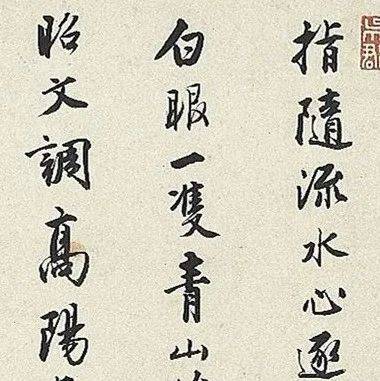 指隨流水心逐
白眼一隻青山
昭文調高陽